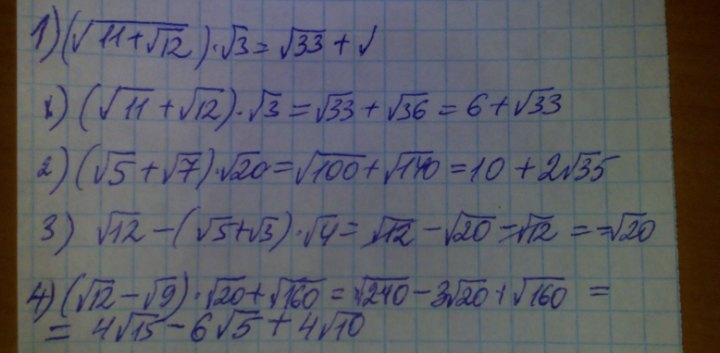 1) (√11+√12)·√3 = √33 + √
1) (√11 + √12)·√3 = √33 + √36 = 6 + √33
2) (√5 + √7)·√20 = √100 + √140 = 10 + 2√35
3) √12 − (√5+√3)·√4 = √12 − √20 − √12 = −√20
4) (√12 − √9)·√20 + √160 = √240 − 3√20 + √160 =
= 4√15 − 6√5 + 4√10